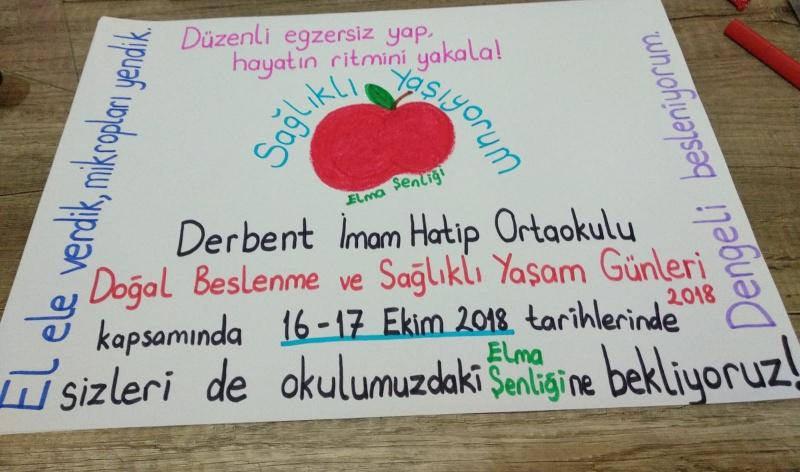 Düzenli egzersiz yap,
hayatın ritmini yakala!
El ele verdik, mikropları yendik.
Sağlıklı Yaşıyorum
Elma Şenliği
Dengeli besleniyorum.
Derbent İmam Hatip Ortaokulu
Doğal Beslenme ve Sağlıklı Yaşam Günleri
2018
kapsamında 16-17 Ekim 2018 tarihlerinde
sizleri de okulumuzdaki Elma Şenliğine bekliyoruz!